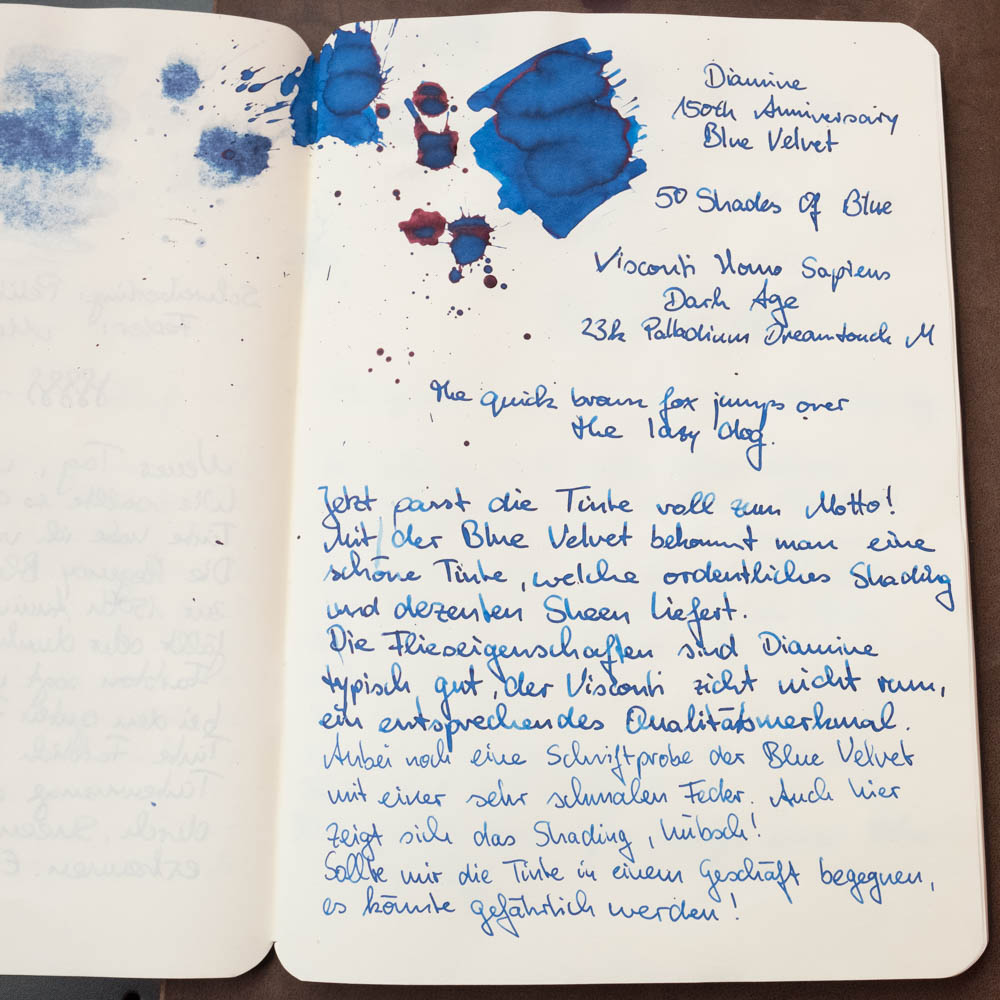 Diamine
150th Anniversary
Blue Velvet
50 Shades Of Blue
Visconti Homo Sapiens
Dark Age
23k Palladium Dreamtouch M
the quick brown fox jumps over
the lazy dog.
Jetzt passt die Tinte voll zum Motto!
Mit der Blue Velvet bekommt man eine
schöne Tinte, welche ordentliches Shading
und dezenten Sheen liefert.
Die Flieseigenschaften sind Diamine
typisch gut, der Visconti zickt nicht rum,
ein entsprechendes Qualitätsmerkmal.
Anbei noch eine Schriftprobe der Blue Velvet
mit einer sehr schmalen Feder. Auch hier
zeigt sich das Shading, hübsch!
Sollte mir die Tinte in einem Geschäft begegnen,
es könnte gefährlich werden!